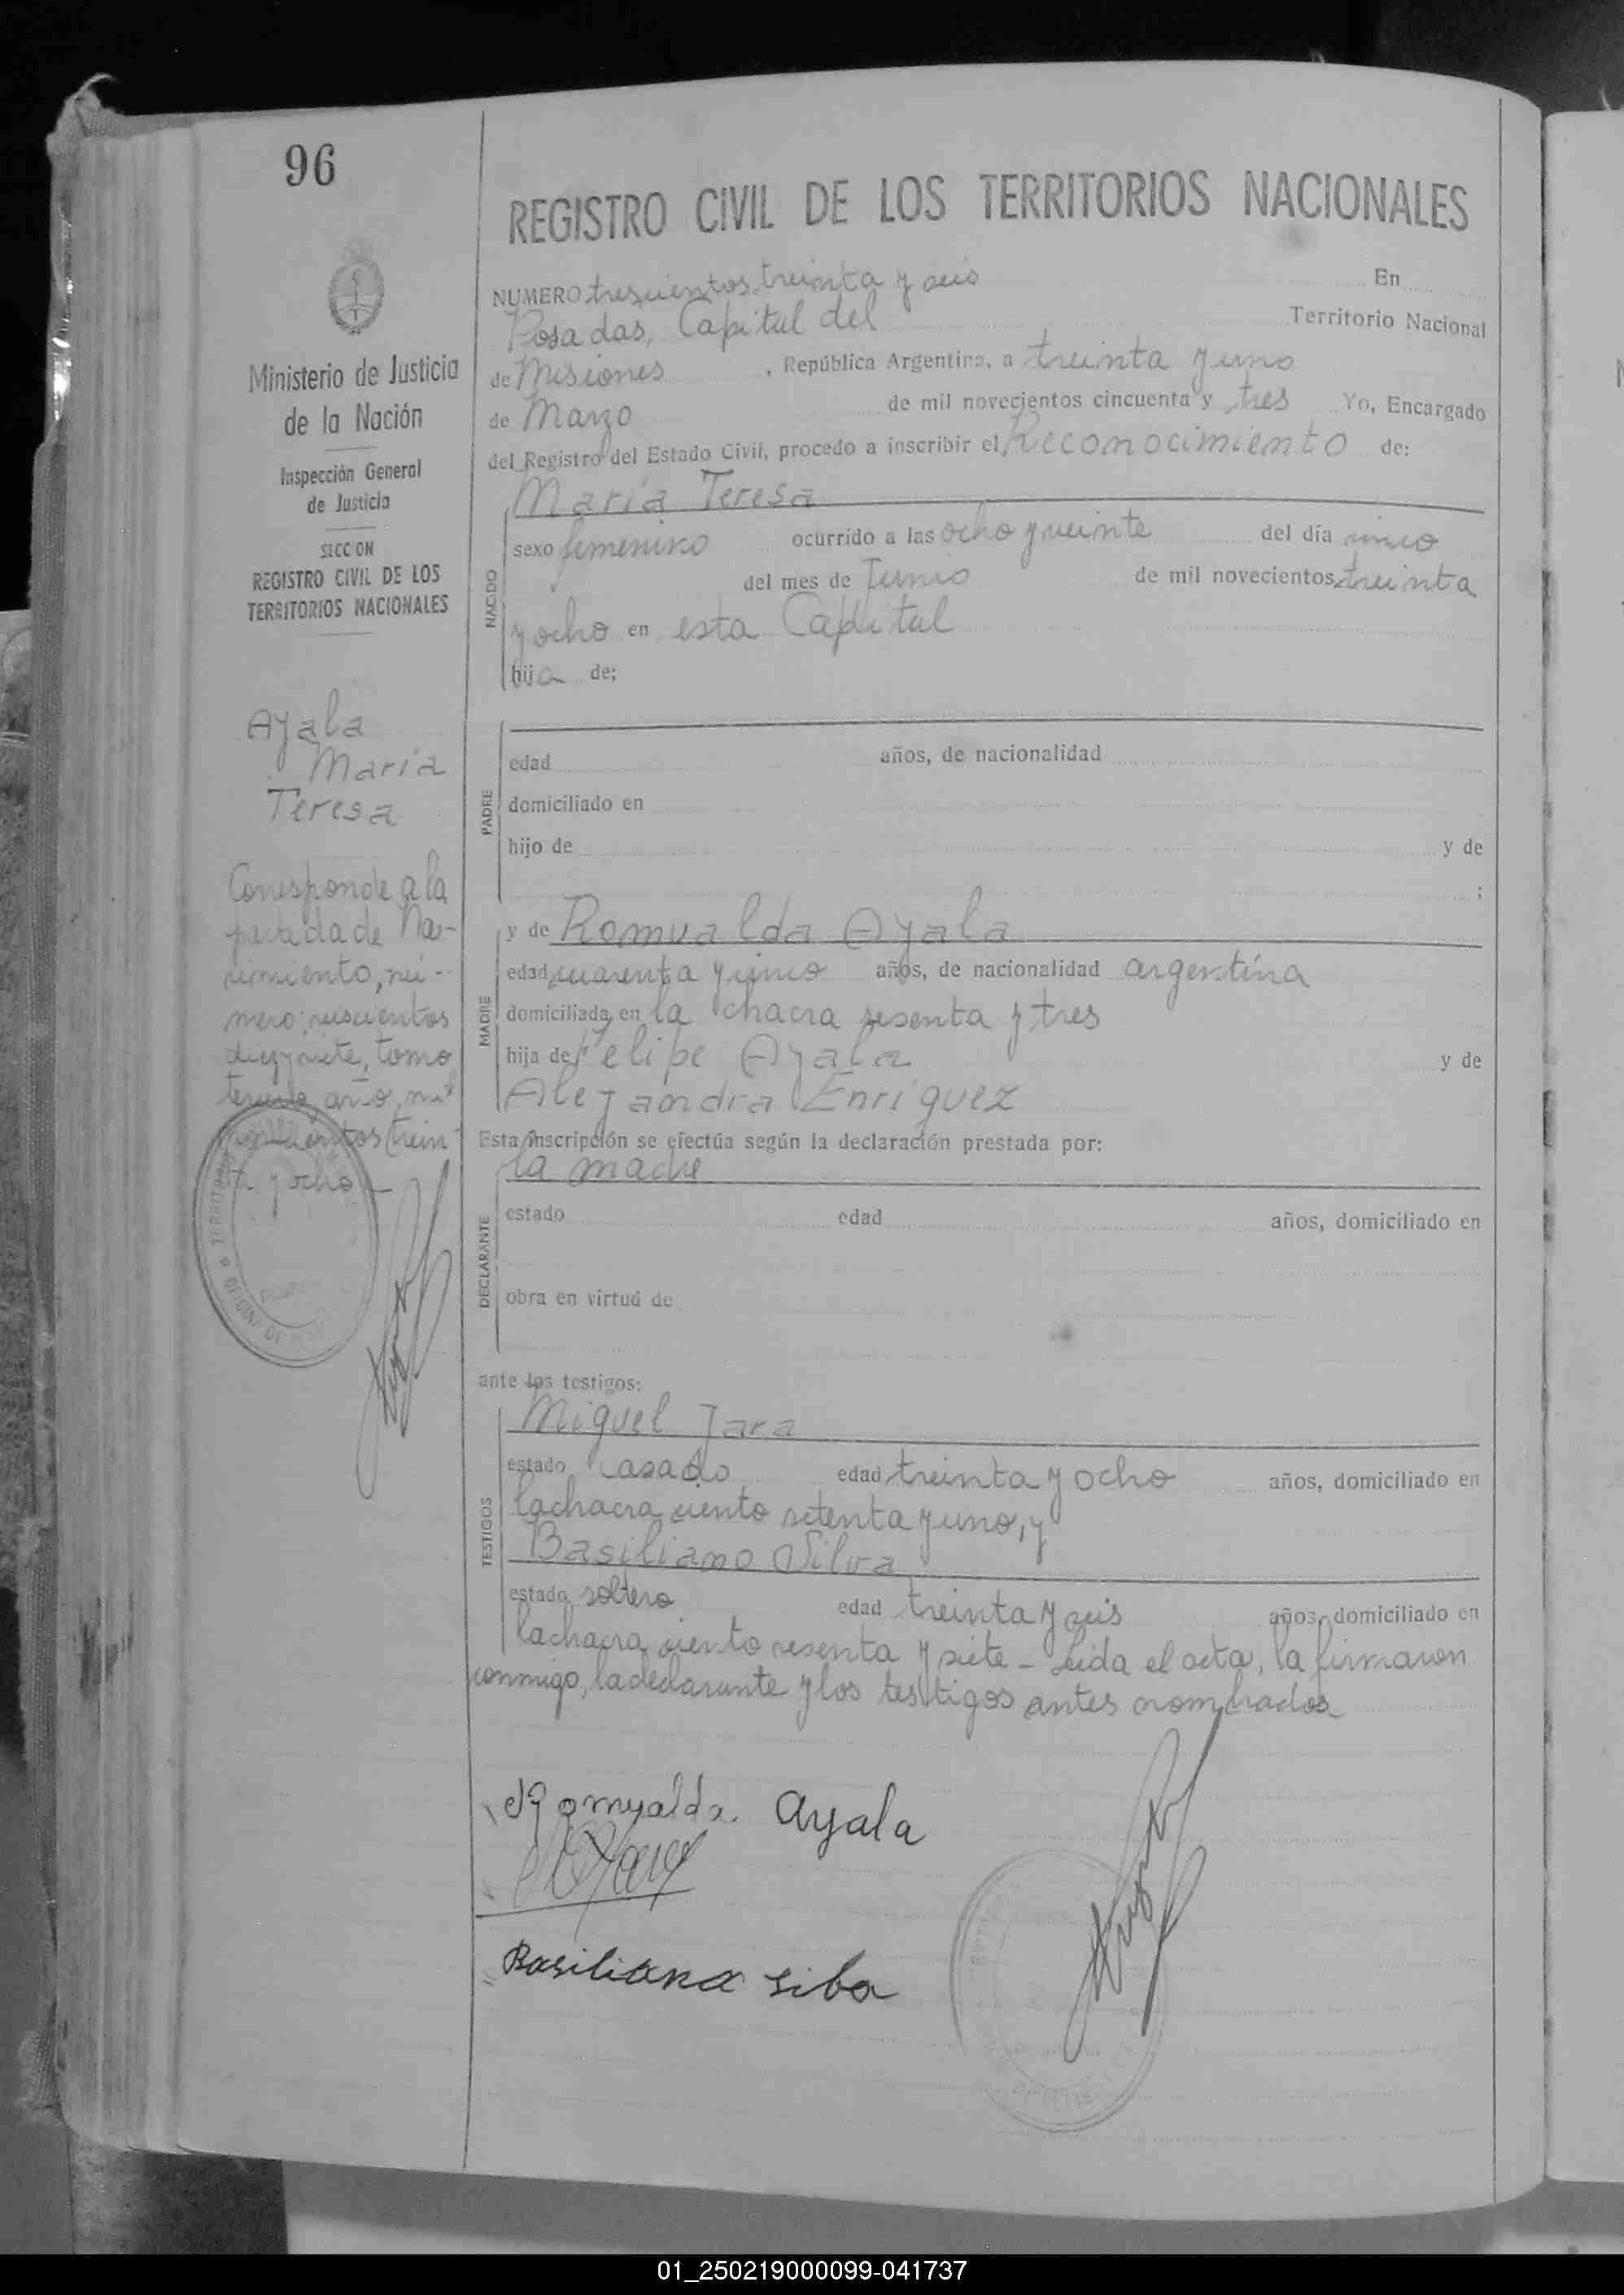 96
REGISTRO CIVIL DE LOS TERRITORIOS NACIONALES
Ministerio de Justicia
de la Nación
Inspección General
de Justicia
SECCION
REGISTRO CIVIL DE LOS
TERRITORIOS NACIONALES
Ayala
Maria
Teresa
Corresponde a la
partida de Na-
cimiento, nú-
mero; seiscientos
diez y siete, tomo
tercero, año, mil
novecientos trein-
ta y ocho
NUMERO trescientos treinta y seis En
Posadas, Capital del Territorio Nacional
de Misiones , República Argentina, a treinta y uno
de Marzo de mil novecientos cincuenta y tres Yo, Encargado
del Registro del Estado Civil, procedo a inscribir el Reconocimiento de:
María Teresa
NACIDO
sexo femenino ocurrido a las ocho y veinte del día cinco
del mes de Junio de mil novecientos treinta
y ocho en esta Capital
hija de;
PADRE
edad años, de nacionalidad
domiciliado en
hijo de y de
;
MADRE
y de Romualda Ayala
edad cuarenta y cinco años, de nacionalidad argentina
domiciliada en la chacra sesenta y tres
hija de Felipe Ayala y de
Alejandra Enriguez
Esta inscripción se efectúa según la declaración prestada por:
la madre
DECLARANTE
estado edad años, domiciliado en
obra en virtud de
ante los testigos:
TESTIGOS
Miguel Jara
estado casado edad treinta y ocho años, domiciliado en
la chacra ciento setenta y uno, y
Basiliano Silva
estado soltero edad treinta y seis años, domiciliado en
la chacra ciento sesenta y siete - Leida el acta, la firmaron
conmigo, la declarante y los testigos antes nombrados
Romualda Ayala
Basiliana Silva
01_250219000099-041737